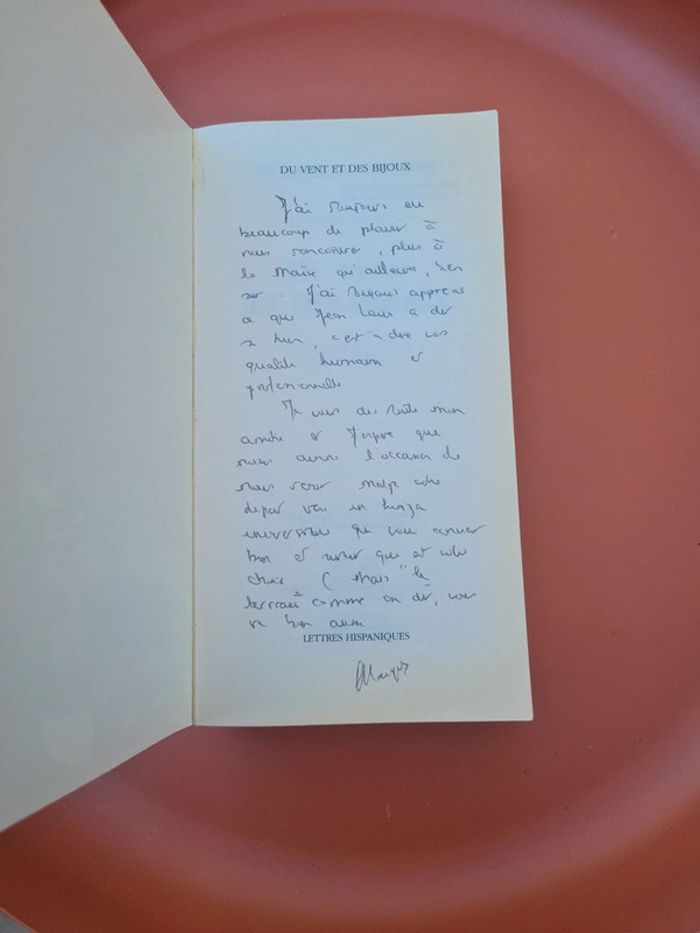 DU VENT ET DES BIJOUX
J'ai toujours eu
beaucoup de plaisir à
vous rencontrer, plus à
la Mairie qu'ailleurs, bien
sûr. J'ai toujours apprécié
ce que Jean Louis a dit
si bien, c'est à dire vos
qualités humaines et
professionnelles.
Je vous des mon
amitié et J'espère que
nous aurons l'occasion de
nous voir malgré votre
départ vers un
universitaire que vous connaissez
bien et surtout qui est votre
choix (Mais "le
terrain" comme on dit, vous
va bien aussi
LETTRES HISPANIQUES